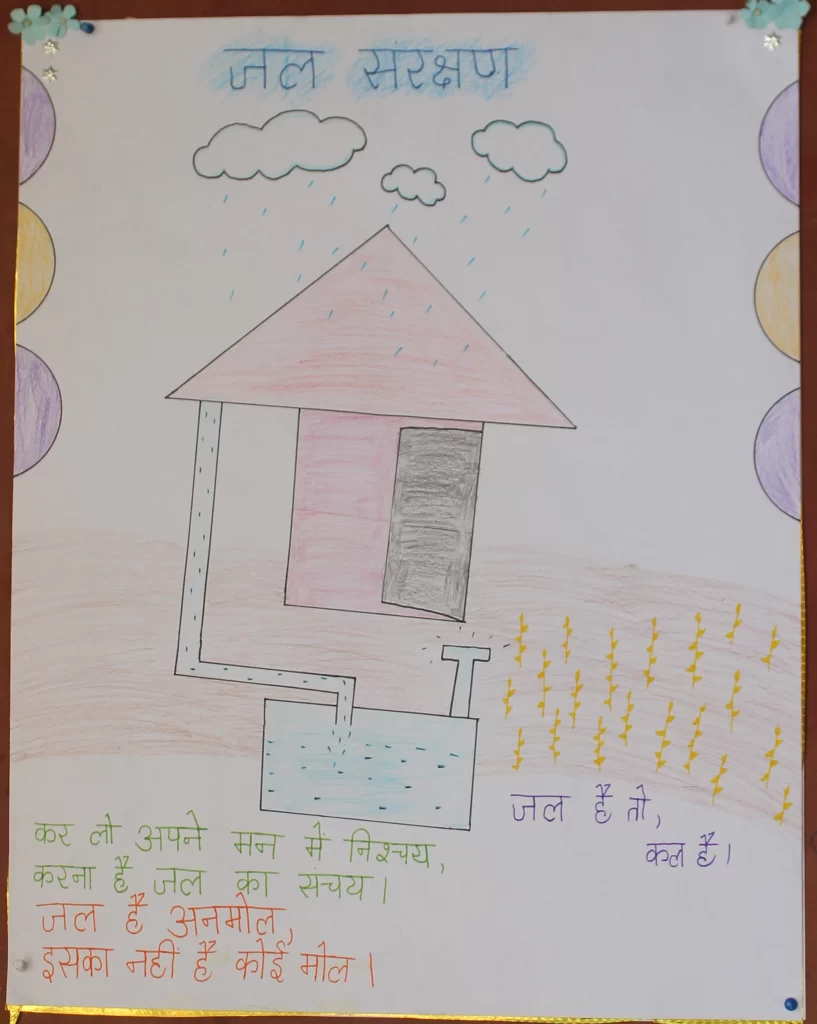 जल संरक्षण
जल है तो,
कल है।
कर लो अपने मन में निश्चय,
करना है जल का संचय।
जल है अनमोल,
इसका नहीं है कोई मोल।